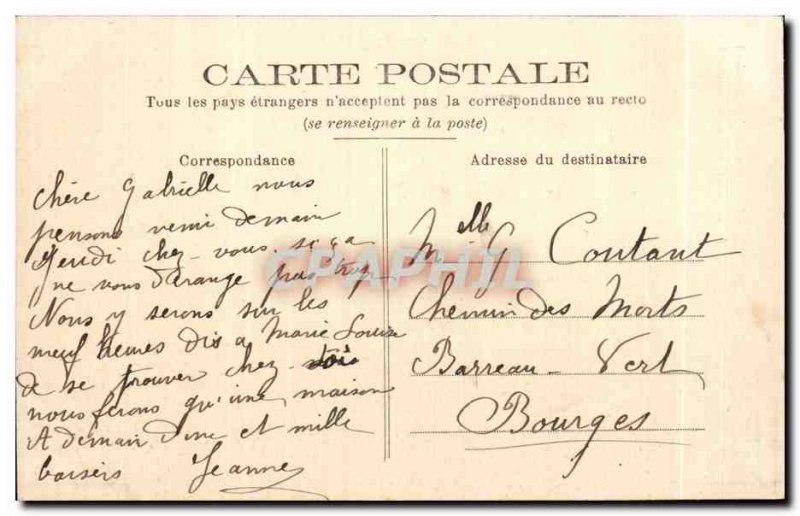 CARTE POSTALE
Tous les pays étrangers n'acceptent pas la correspondance au recto
(se renseigner à la poste)
Correspondance
chère Gabrielle nous
pensons venir demain
Jeudi chez-vous si ça
ne vous dérange pas trop
Nous y serons sur les
neuf heures dis a Marie Louise
de se trouver chez toi
nous ferons qu'une maison
A demain donc et mille
baisers Jeanne
Adresse du destinataire
Melle G Coutant
Chemin des Morts
Barreau-Vert
Bourges
CPAPHIL